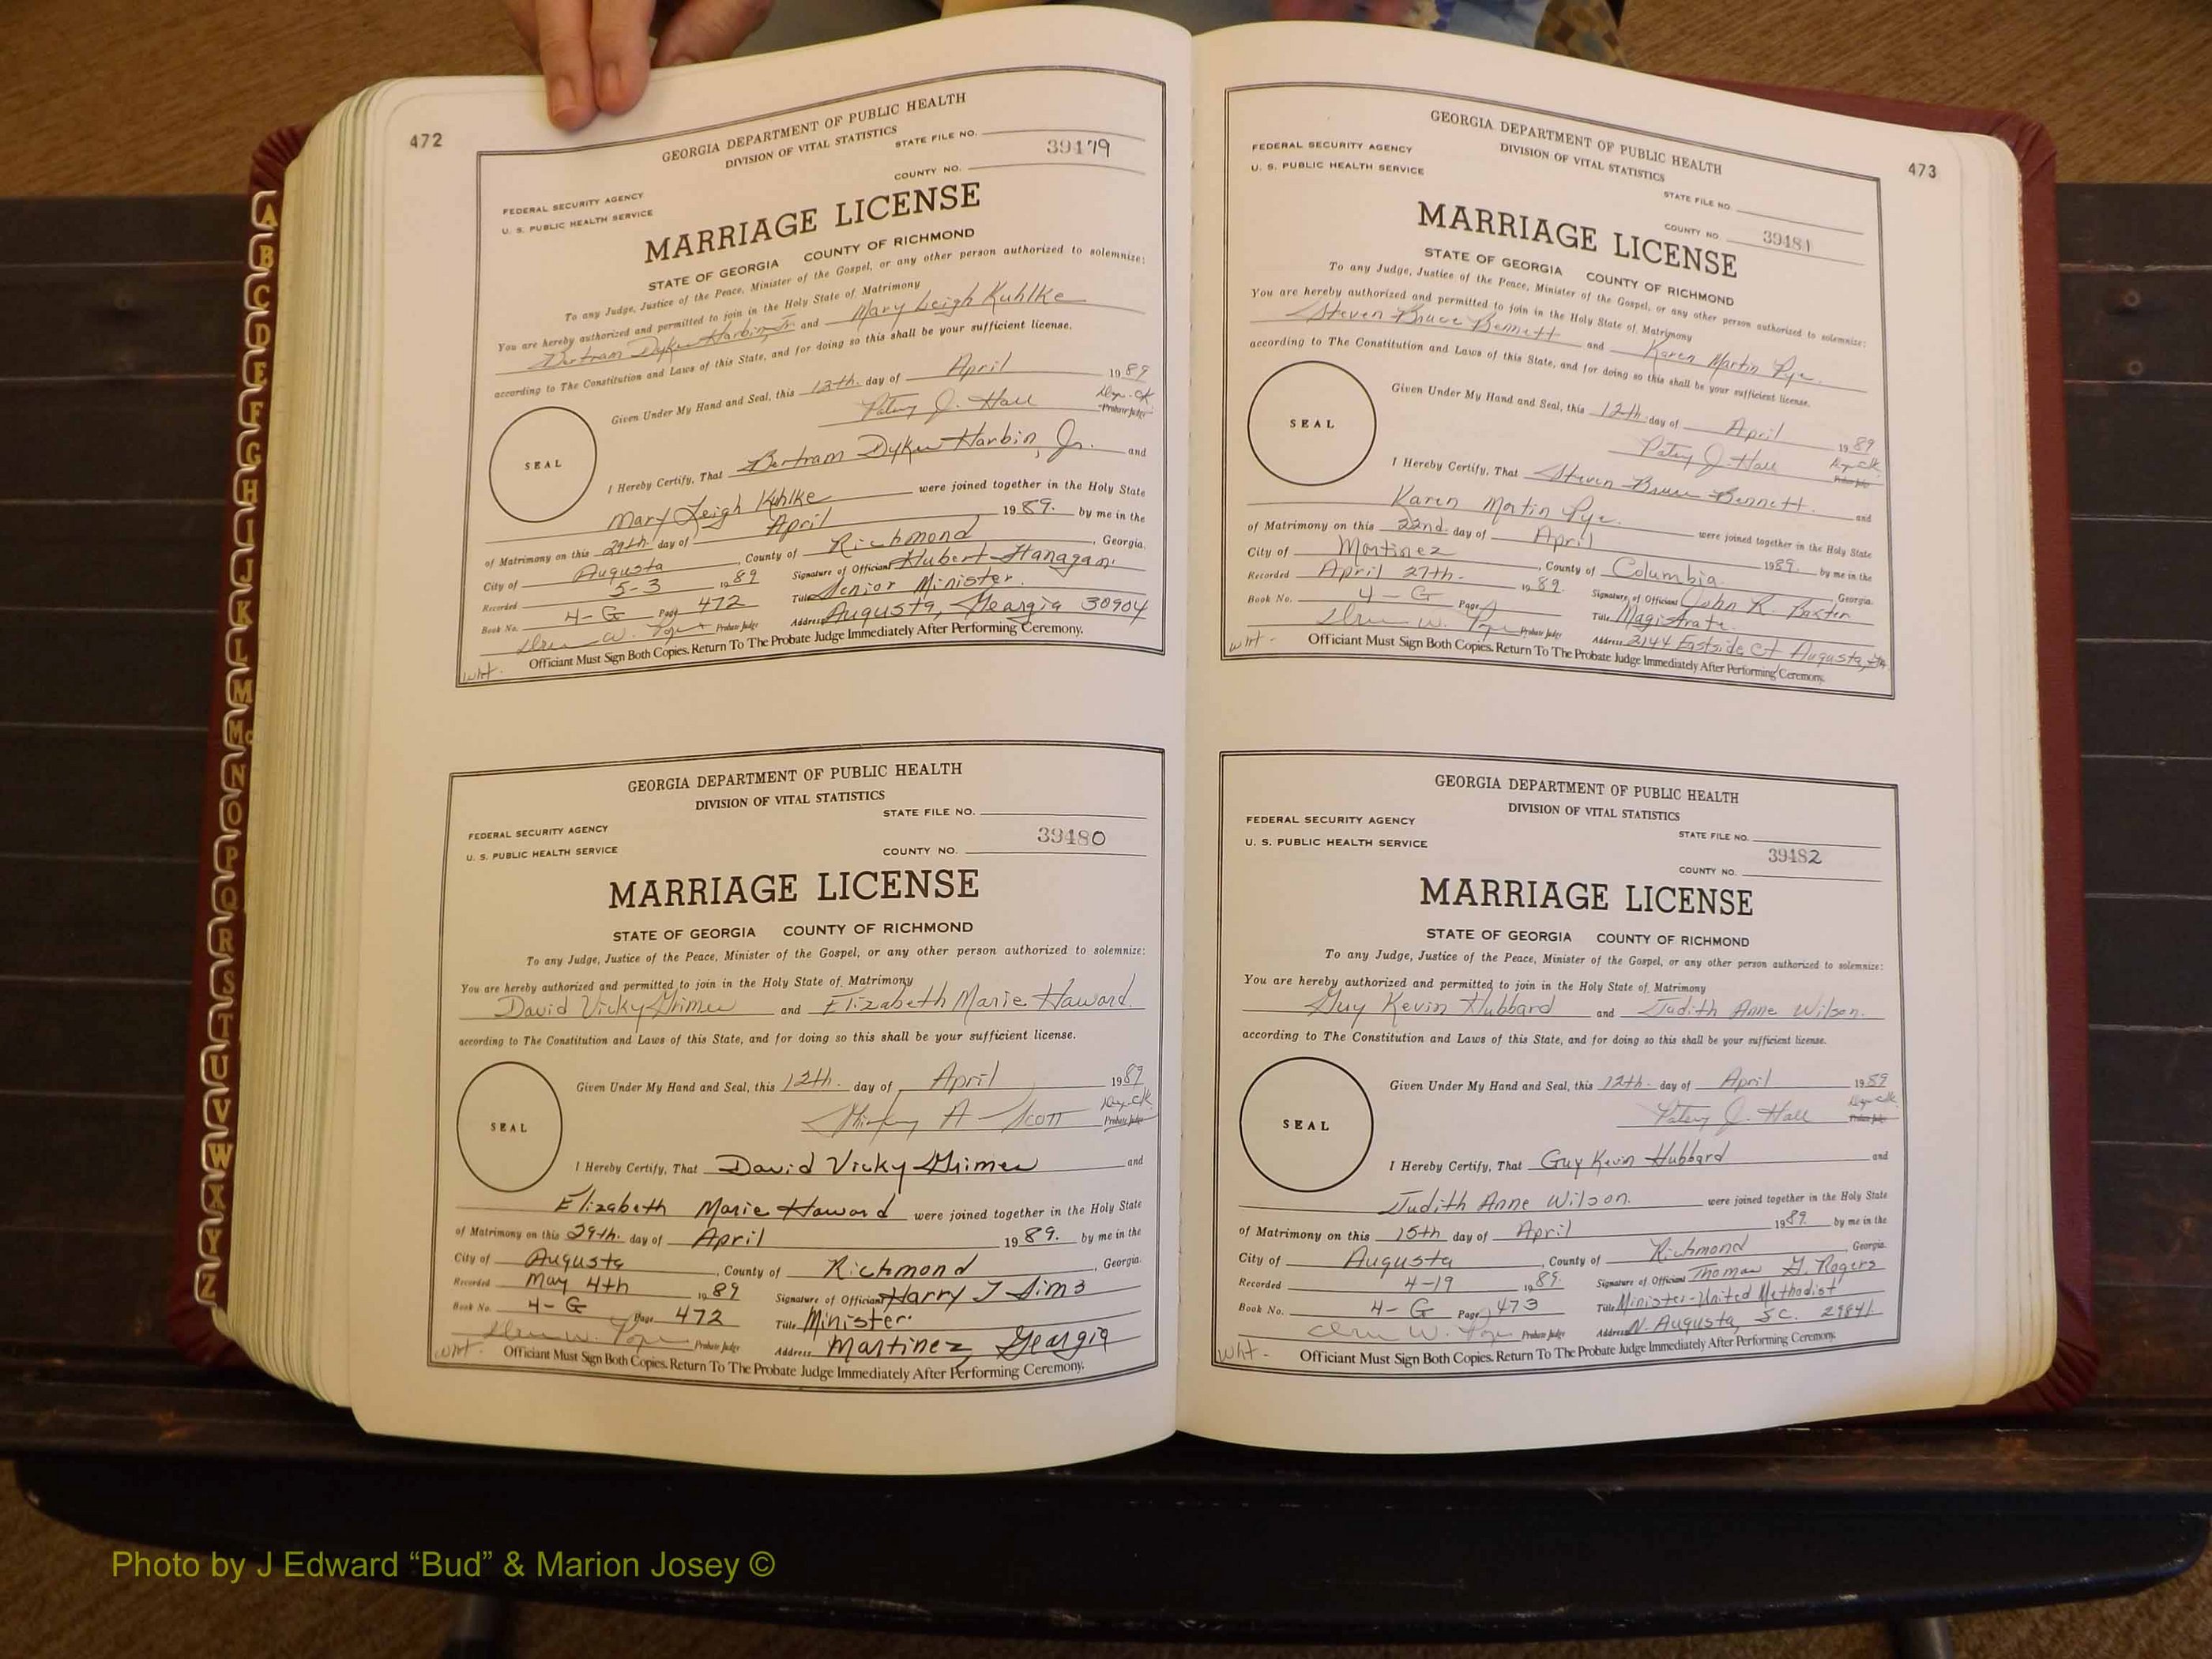 472
GEORGIA DEPARTMENT OF PUBLIC HEALTH
DIVISION OF VITAL STATISTICS
STATE FILE NO.
39479
COUNTY NO.
FEDERAL SECURITY AGENCY
U. S. PUBLIC HEALTH SERVICE
MARRIAGE LICENSE
STATE OF GEORGIA COUNTY OF RICHMOND
To any Judge, Justice of the Peace, Minister of the Gospel, or any other person authorized to solemnize:
You are hereby authorized and permitted to join in the Holy State of Matrimony
Bertram Dyker Harbin, Jr. and Mary Leigh Kuhlke
according to The Constitution and Laws of this State, and for doing so this shall be your sufficient license.
Given Under My Hand and Seal, this 12th. day of April 1989
Patsy J. Hall Dep. Ck. Probate Judge
SEAL
I Hereby Certify, That Bertram Dyker Harbin, Jr. and
Mary Leigh Kuhlke were joined together in the Holy State
of Matrimony on this 29th. day of April 1989. by me in the
City of Augusta, County of Richmond, Georgia.
Recorded 5-3 1989 Signature of Official Hubert Flanagan
Book No. 4-G Page 472 Title Senior Minister
Probate Judge Address Augusta, Georgia 30904
Wht. Officiant Must Sign Both Copies. Return To The Probate Judge Immediately After Performing Ceremony.
GEORGIA DEPARTMENT OF PUBLIC HEALTH
DIVISION OF VITAL STATISTICS
STATE FILE NO.
FEDERAL SECURITY AGENCY
39480
U. S. PUBLIC HEALTH SERVICE COUNTY NO.
MARRIAGE LICENSE
STATE OF GEORGIA COUNTY OF RICHMOND
To any Judge, Justice of the Peace, Minister of the Gospel, or any other person authorized to solemnize:
You are hereby authorized and permitted to join in the Holy State of Matrimony
David Vicky Grimes and Elizabeth Marie Haward.
according to The Constitution and Laws of this State, and for doing so this shall be your sufficient license.
Given Under My Hand and Seal, this 12th. day of April 1989
A Scott Dep. Ck. Probate Judge
SEAL
I Hereby Certify, That David Vicky Grimes and
Elizabeth Marie Haward were joined together in the Holy State
of Matrimony on this 29th. day of April 1989. by me in the
City of Augusta, County of Richmond, Georgia.
Recorded May 4th 1989 Signature of Official Harry J Sims
Book No. 4-G Page 472 Title Minister.
Probate Judge Address Martinez, Georgia
Wht. Officiant Must Sign Both Copies. Return To The Probate Judge Immediately After Performing Ceremony.
473
GEORGIA DEPARTMENT OF PUBLIC HEALTH
DIVISION OF VITAL STATISTICS
FEDERAL SECURITY AGENCY
U. S. PUBLIC HEALTH SERVICE
STATE FILE NO.
COUNTY NO. 39481
MARRIAGE LICENSE
STATE OF GEORGIA COUNTY OF RICHMOND
To any Judge, Justice of the Peace, Minister of the Gospel, or any other person authorized to solemnize:
You are hereby authorized and permitted to join in the Holy State of Matrimony
Steven Bruce Bennett and Karen Martin Pye.
according to The Constitution and Laws of this State, and for doing so this shall be your sufficient license.
Given Under My Hand and Seal, this 12th. day of April 1989
Patsy J. Hall Dep. Ck. Probate Judge
SEAL
I Hereby Certify, That Steven Bruce Bennett. and
Karen Martin Pye. were joined together in the Holy State
of Matrimony on this 22nd. day of April 1989. by me in the
City of Martinez, County of Columbia Georgia.
Recorded April 27th. 1989. Signature of Official John R. Baxter
Book No. 4-G Page Title Magistrate
Probate Judge Address 2144 Eastside Ct Augusta, Ga
Wht- Officiant Must Sign Both Copies. Return To The Probate Judge Immediately After Performing Ceremony.
GEORGIA DEPARTMENT OF PUBLIC HEALTH
DIVISION OF VITAL STATISTICS
FEDERAL SECURITY AGENCY
STATE FILE NO.
U. S. PUBLIC HEALTH SERVICE
39482
COUNTY NO.
MARRIAGE LICENSE
STATE OF GEORGIA COUNTY OF RICHMOND
To any Judge, Justice of the Peace, Minister of the Gospel, or any other person authorized to solemnize:
You are hereby authorized and permitted to join in the Holy State of Matrimony
Guy Kevin Hubbard and Judith Anne Wilson.
according to The Constitution and Laws of this State, and for doing so this shall be your sufficient license.
Given Under My Hand and Seal, this 12th. day of April 1989
Patsy J. Hall Dep. Ck. Probate Judge
SEAL
I Hereby Certify, That Guy Kevin Hubbard and
Judith Anne Wilson. were joined together in the Holy State
of Matrimony on this 15th day of April 1989. by me in the
City of Augusta, County of Richmond, Georgia.
Recorded 4-19 1989. Signature of Official Thomas G. Rogers
Book No. 4-G Page 473 Title Minister-United Methodist
Probate Judge Address N. Augusta, SC. 29841
Wht- Officiant Must Sign Both Copies. Return To The Probate Judge Immediately After Performing Ceremony.
A
B
C
D
E
F
G
H
I
J
K
L
M
Mc
N
O
P
Q
R
S
T
U
V
W
X
Y
Z
Photo by J Edward “Bud” & Marion Josey ©